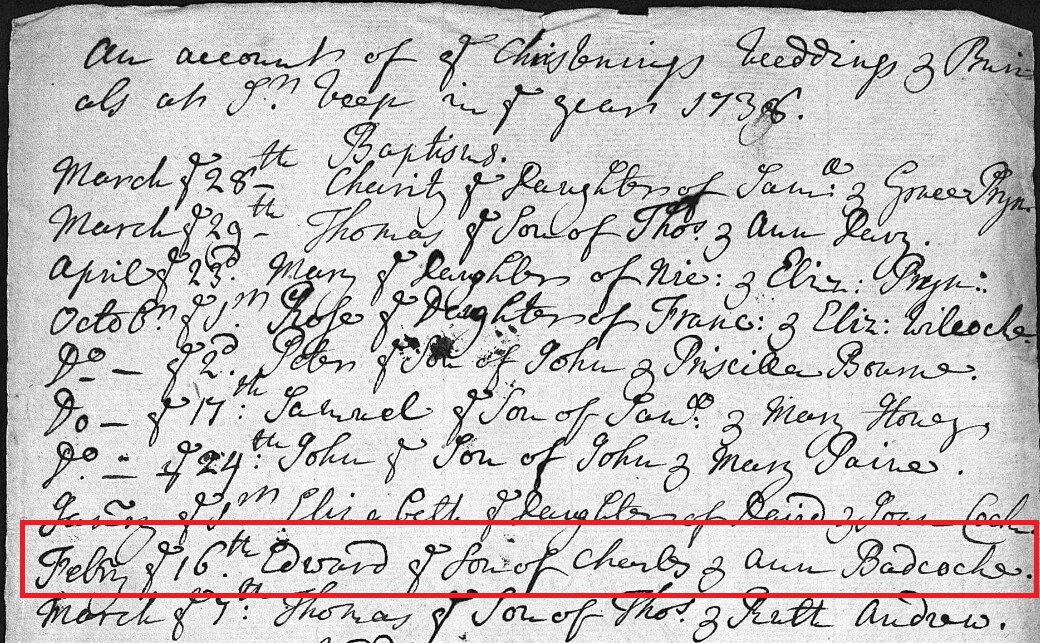 An account of ye Chrisenings Weddings & Buri
als at St. Veep in ye year 1736.
Baptisms.
March ye 28th Charity ye Daughter of Sam: & Grace Pryn
March ye 29th Thomas ye Son of Thos. & Ann Davy.
April ye 23d. Mary ye Daughter of Nic: & Eliz: Pryn:
Octobr. ye 1st Rose ye Daughter of Franc: & Eliz: Wilcocke
Do — ye 2d. Peter ye Son of John & Priscilla Bourne.
Do — ye 17th: Samuel ye Son of Samll. & Mary Honey
Do — ye 24th: John ye Son of John & Mary Paine.
ye 1st Elizabeth ye Daughter of David & Joan Cock
Febry ye 16th. Edward ye Son of Charles & Ann Badcocke.
March ye 7th: Thomas ye Son of Thos. & Ruth Andrew.